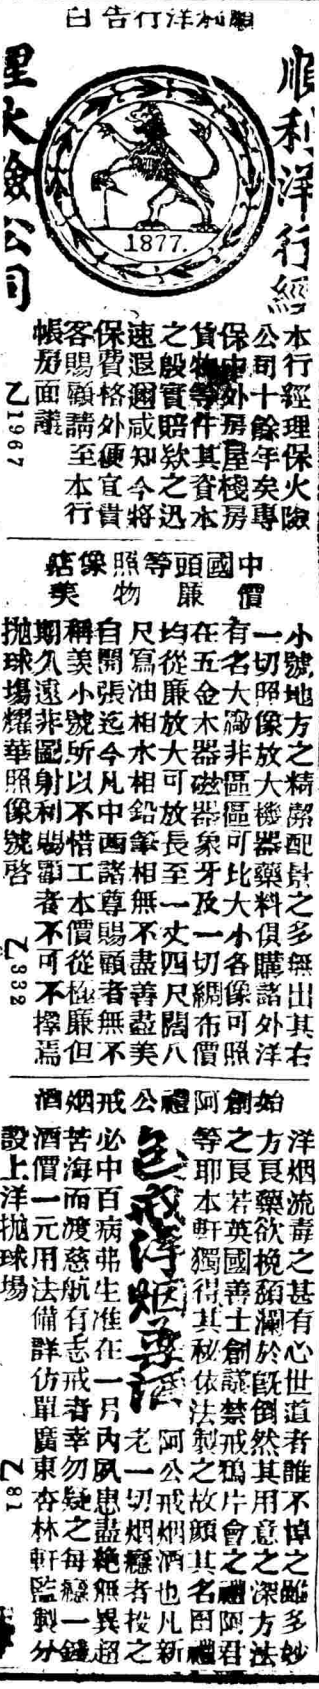 順利洋行告白
順利洋行經
理火險公司
1877.
本行經理保火險
公司十餘年矣專
保中外房屋棧房
貨物等件其資本
之殷實賠欵之迅
速遐邇咸知今將
保費格外便宜貴
客賜顧請至本行
帳房面議
乙1967
中國頭等照像店
價廉物美
小號地方之精潔配景之多無出其右
一切照像放大機器藥料俱購諸外洋
有名大廠非區區可比大小各像可照
在五金木器磁器象牙及一切綢布價
均從廉放大可放長至一丈四尺闊八
尺寫油相水相鉛筆相無不盡善盡美
自開張迄今凡中西諸尊賜顧者無不
稱美小號所以不惜工本價從極廉但
期久遠非圖射利賜顧者不可不擇焉
拋球場耀華照像號啓
乙332
始創阿禮公戒烟酒
包戒洋烟
洋烟流毒之甚有心世道者誰不悼之雖多妙
方良藥欲挽頹瀾於既倒然其用意之深方法
之良若英國善士創議禁戒鴉片會之禮阿君
等耶本軒獨得其秘依法製之故顏其名曰禮
阿公戒烟酒也凡新
老一切烟癮者投之
必中百病弗生准在一月內夙患盡絶無異超
苦海而渡慈航有志戒者幸勿疑之每癮一錢
酒價一元用法備詳仿單廣東杏林軒監製分
設上洋拋球場
乙81